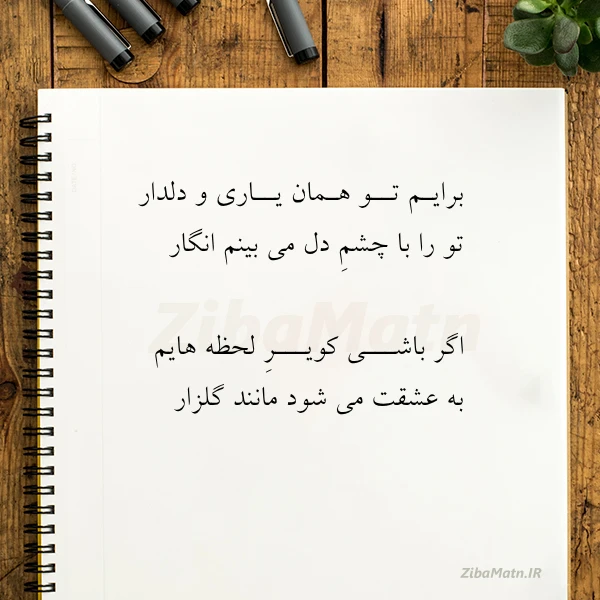 برایم تو همان یاری و دلدار
تو را با چشمِ دل می بینم انگار
اگر باشی کویرِ لحظه هایم
به عشقت می شود مانند گلزار
ZibaMatn
ZibaMatn.IR